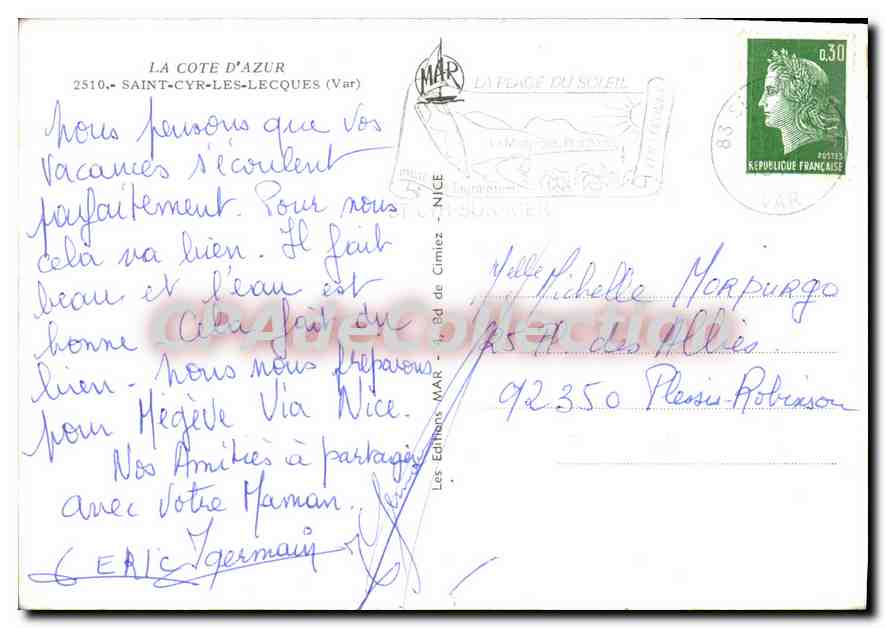 LA COTE D'AZUR
2510.- SAINT-CYR-LES-LECQUES (Var)
Nous pensons que vos
vacances s'écoulent
parfaitement. Pour nous
cela va bien. Il fait
beau et l'eau est
bonne. Cela fait du
bien - nous nous préparons
pour Mégève Via Nice.
Nos Amitiés à partager
avec votre Maman.
ERIC germain
MAR
Les Editions MAR - 1, Bd de Cimiez - NICE
LA PLAGE DU SOLEIL
ST CYR SUR MER
83
VAR
0,30
POSTES
REPUBLIQUE FRANÇAISE
Melle Michelle Morpurgo
25 A. des Alliés
92350 Plessis-Robinson
CPAdeCollection